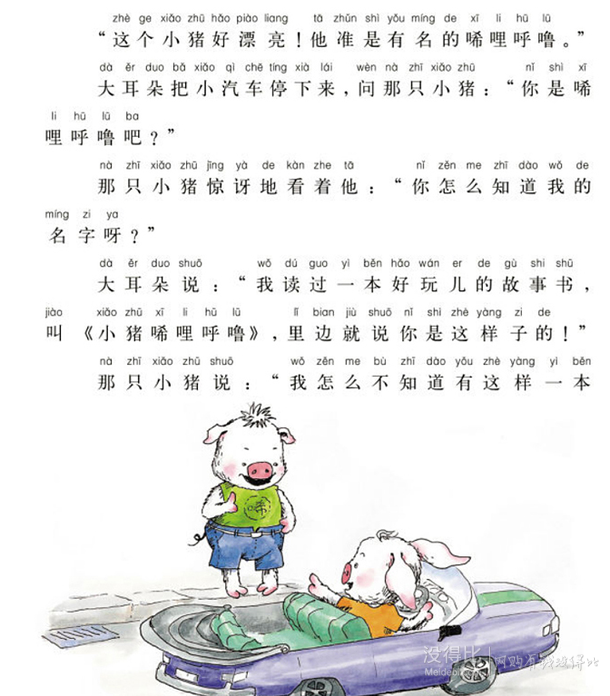 zhè ge xiǎo zhū hǎo piào liang tā zhǔn shì yǒu míng de xī li hū lū
“这个小猪好漂亮！他准是有名的唏哩呼噜。”
dà ěr duo bǎ xiǎo qì chē tíng xià lái wèn nà zhī xiǎo zhū nǐ shì xī
大耳朵把小汽车停下来，问那只小猪：“你是唏
li hū lū ba
哩呼噜吧？”
nà zhī xiǎo zhū jīng yà de kàn zhe tā nǐ zěn me zhī dào wǒ de
那只小猪惊讶地看着他：“你怎么知道我的
míng zi ya
名字呀？”
dà ěr duo shuō wǒ dú guo yì běn hǎo wán er de gù shi shū
大耳朵说：“我读过一本好玩儿的故事书，
jiào xiǎo zhū xī li hū lū lǐ bian jiù shuō nǐ shì zhè yàng zi de
叫《小猪唏哩呼噜》，里边就说你是这样子的！”
nà zhī xiǎo zhū shuō wǒ zěn me bù zhī dào yǒu zhè yàng yì běn
那只小猪说：“我怎么不知道有这样一本
唏
没得比
网购有我没得比